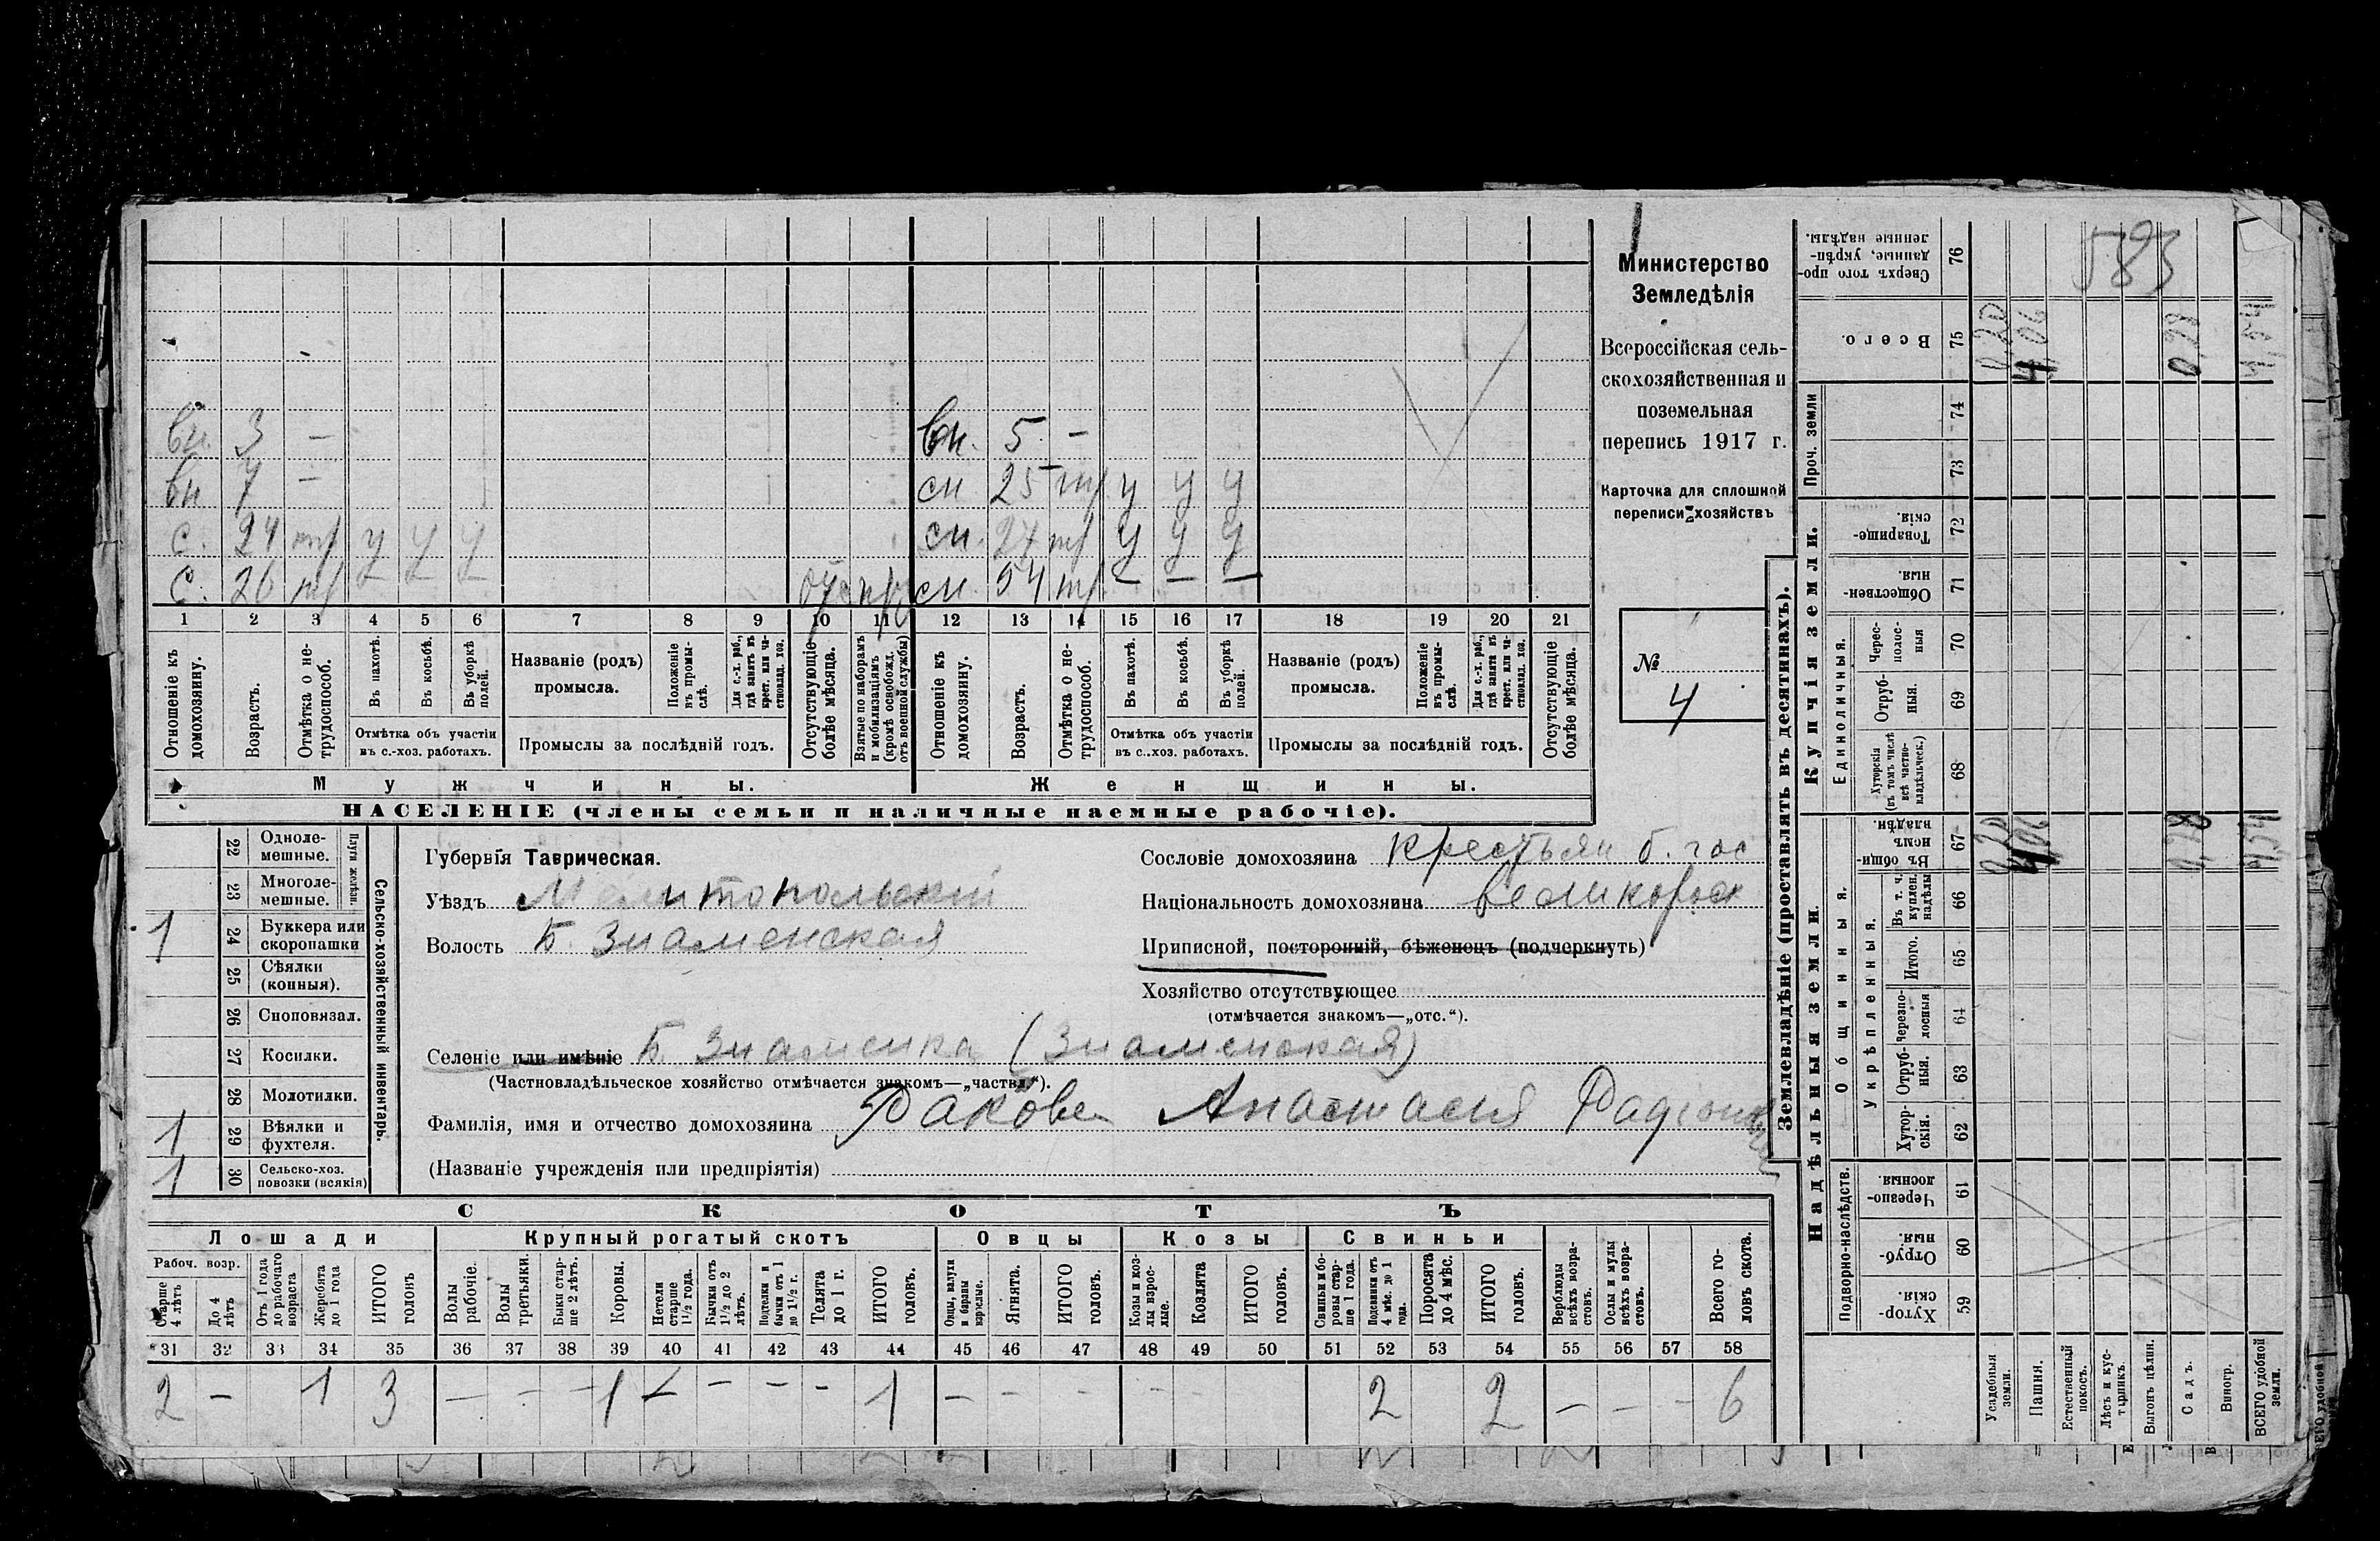 583
Министерство
Земледѣлія
Всероссійская сель-
скохозяйственная и
поземельная
перепись 1917 г.
Карточка для сплошной
переписи хозяйствъ
№
4
вн. 3 —
вн 7 —
с. 24 тр у у у
с. 26 тр — — —
вн. 5 —
сн 25 тр у у у
сн. 27 тр у у у
сн. 54 тр — — —
1 2 3 4 5 6 7 8 9 10 11 12 13 14 15 16 17 18 19 20 21
Отношеніе къ домохозяину.
Возрастъ.
Отмѣтка о не-трудоспособ.
Въ пахотѣ.
Въ косьбѣ.
Въ уборкѣ полей.
Отмѣтка объ участіи
въ с.-хоз. работахъ.
Названіе (родъ)
промысла.
Положеніе въ промы-слѣ.
Для с.-х. раб., гдѣ занятъ въ крест. или ча-стновлад. хоз.
Промыслы за послѣдній годъ.
Отсутствующіе болѣе мѣсяца.
Взятые по наборамъ и мобилизаціямъ (кромѣ освобожд. отъ военной службы)
Отношеніе къ домохозяину.
Возрастъ.
Отмѣтка о не-трудоспособ.
Въ пахотѣ.
Въ косьбѣ.
Въ уборкѣ полей.
Отмѣтка объ участіи
въ с..хоз. работахъ.
Названіе (родъ)
промысла.
Положеніе въ промы-слѣ.
Для с.-х. раб., гдѣ занята въ крест. или ча-стновлад. хоз.
Промыслы за послѣдній годъ.
Отсутствующіе болѣе мѣсяца.
Мужчины.
Женщины.
НАСЕЛЕНІЕ (члены семьи и наличные наемные рабочіе).
Сельско-хозяйственный инвентарь.
Плуги желѣзн.
22 Одноле-мешные.
23 Многоле-мешные.
1 24 Буккера или скоропашки
25 Сѣялки (конныя).
26 Сноповязал.
27 Косилки.
28 Молотилки.
1 29 Вѣялки и фухтеля.
1 30 Сельско-хоз. повозки (всякія)
Губернія Таврическая.
Уѣздъ Мелитопольскій
Волость Б. Знаменская
Сословіе домохозяина крестьян б. гос
Національность домохозяина великорос
Приписной, посторонній, бѣженецъ (подчеркнуть)
Хозяйство отсутствующее
(отмѣчается знакомъ—„отс.“).
Селеніе или имѣніе Б. Знаменка (Знаменская)
(Частновладѣльческое хозяйство отмѣчается знакомъ—„частвл.“).
Фамилія, имя и отчество домохозяина Ракова Анастасія
(Названіе учрежденія или предпріятія)
СКОТЪ
Лошади
Крупный рогатый скотъ
Овцы
Козы
Свиньи
Рабоч. возр.
Старше 4 лѣтъ
До 4 лѣтъ
Отъ 1 года до рабочаго возраста
Жеребята до 1 года
ИТОГО головъ
Волы рабочіе.
Волы третьяки.
Быки стар-ше 2 лѣтъ.
Коровы.
Нетели старше 1½ года.
Бычки отъ 1½ до 2 лѣтъ.
Подтелки и бычки отъ 1 до 1½ г.
Телята до 1 г.
ИТОГО головъ.
Овцы, валухи и бараны взрослые.
Ягнята.
ИТОГО головъ.
Козы и коз-лы взрос-лые.
Козлята
ИТОГО головъ.
Свиньи и бо-ровы стар-ше 1 года.
Подсвинки отъ 4 мѣс. до 1 года.
Поросята до 4 мѣс.
ИТОГО головъ.
Верблюды всѣхъ возра-стовъ.
Ослы и мулы всѣхъ возра-стовъ.
Всего го-ловъ скота.
31 32 33 34 35 36 37 38 39 40 41 42 43 44 45 46 47 48 49 50 51 52 53 54 55 56 57 58
2 — 1 3 — — — 1 — — — — 1 — — — — — 2 2 — — — 6
Землевладѣніе (проставлять въ десятинахъ).
Надѣльныя земли.
Купчія земли.
Проч. земли
Подворно-наслѣдств.
Общинныя.
Укрѣпленныя.
Единоличныя.
Хутор-скія. 59
Отруб-ныя. 60
Черезпо-лосныя. 61
Хутор-скія. 62
Отруб-ныя. 63
Черезпо-лосныя 64
Итого. 65
Въ т. ч. куплен. надѣлы 66
Въ общин-номъ владѣн. 67
Хуторскія (въ томъ числѣ всѣ частно-владѣльческ.) 68
Отруб-ныя. 69
Черес-полос-ныя 70
Обществен-ныя. 71
Товарище-скія. 72
73
74
Всего. 75
Сверхъ того про-данные, укрѣп-ленные надѣлы. 76
Усадебныя земли.
Пашня.
Естественный покосъ.
Лѣсъ и кус-тарникъ.
Выгонъ цѣлин.
Садъ.
Виногр.
ВСЕГО удобной земли.
0,20
4,06
0,28
4,54